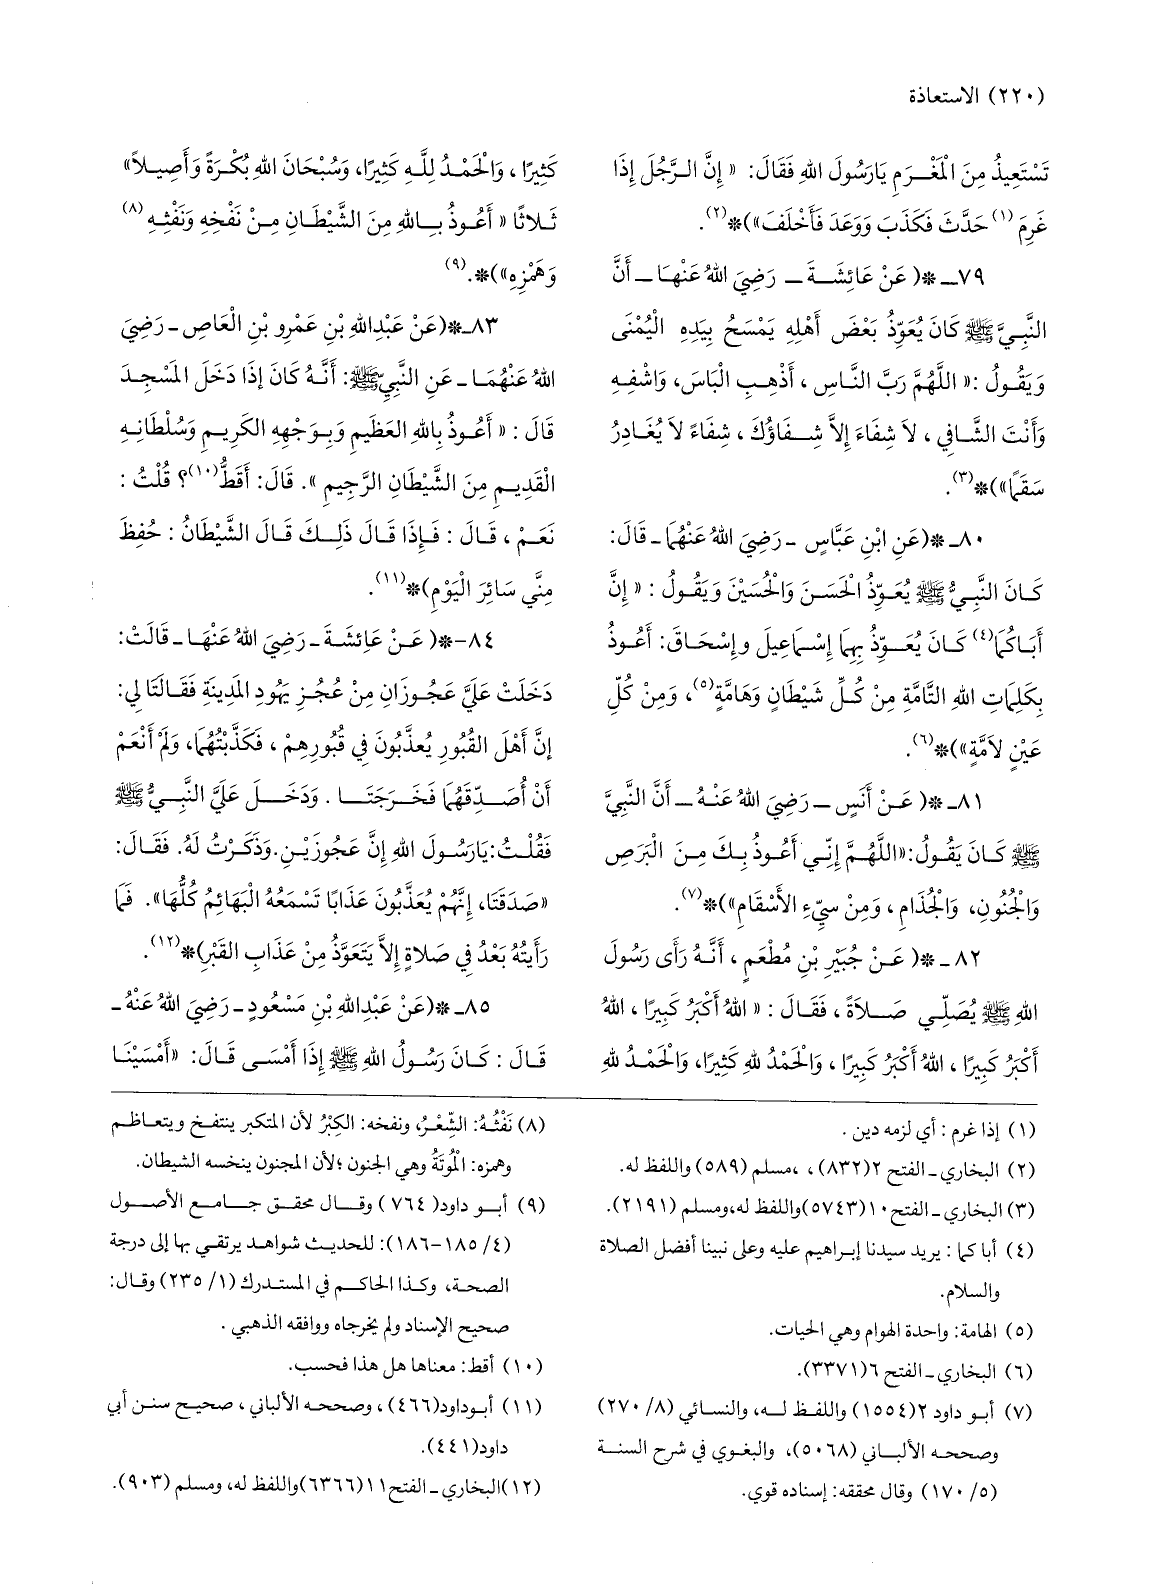 (٢٢٠) الاستعاذة
تَسْتَعِيذُ مِنَ الْمَغْرَمِ يَارَسُولَ اللهِ فَقَالَ: « إِنَّ الرَّجُلَ إِذَا
غَرِمَ(١) حَدَّثَ فَكَذَبَ وَوَعَدَ فَأَخْلَفَ»)*(٢).
٧٩ـ *( عَنْ عَائِشَةَ ـ رَضِيَ اللهُ عَنْهَا ـ أَنَّ
النَّبِيَّ ﷺ كَانَ يُعَوِّذُ بَعْضَ أَهْلِهِ يَمْسَحُ بِيَدِهِ الْيُمْنَى
وَيَقُولُ :« اللَّهُمَّ رَبَّ النَّاسِ ، أَذْهِبِ الْبَاسَ، وَاشْفِهِ
وَأَنْتَ الشَّافِي ، لاَ شِفَاءَ إِلاَّ شِفَاؤُكَ ، شِفَاءً لاَ يُغَادِرُ
سَقَمًا»)*(٣).
٨٠ـ *(عَنِ ابْنِ عَبَّاسٍ ـ رَضِيَ اللهُ عَنْهُمَا ـ قَالَ:
كَانَ النَّبِيُّ ﷺ يُعَوِّذُ الْحَسَنَ وَالْحُسَيْنَ وَيَقُولُ : « إِنَّ
أَبَاكُمَا(٤) كَانَ يُعَوِّذُ بِهَا إِسْمَاعِيلَ وإِسْحَاقَ: أَعُوذُ
بِكَلِمَاتِ اللهِ التَّامَّةِ مِنْ كُلِّ شَيْطَانٍ وَهَامَّةٍ(٥)، وَمِنْ كُلِّ
عَيْنٍ لاَمَّةٍ»)*(٦).
٨١ـ *( عَنْ أَنَسٍ ـ رَضِيَ اللهُ عَنْهُ ـ أَنَّ النَّبِيَّ
ﷺ كَانَ يَقُولُ:«اللَّهُمَّ إِنِّي أَعُوذُ بِكَ مِنَ الْبَرَصِ
وَالْجُنُونِ، وَالْجُذَامِ ، وَمِنْ سَيِّءِ الأَسْقَامِ»)*(٧).
٨٢ ـ *( عَنْ جُبَيْرِ بْنِ مُطْعَمٍ ، أَنَّهُ رَأَى رَسُولَ
اللهِ ﷺ يُصَلِّي صَلاَةً ، فَقَالَ : « اللهُ أَكْبَرُ كَبِيرًا ، اللهُ
أَكْبَرُ كَبِيرًا ، اللهُ أَكْبَرُ كَبِيرًا ، وَالْحَمْدُ للهِ كَثِيرًا، وَالْحَمْدُ للهِ
كَثِيرًا ، وَالْحَمْدُ لِلَّهِ كَثِيرًا، وَسُبْحَانَ اللهِ بُكْرَةً وَأَصِيلاً»
ثَلاثًا « أَعُوذُ بِاللهِ مِنَ الشَّيْطَانِ مِنْ نَفْخِهِ وَنَفْثِهِ(٨)
وَهَمْزِهِ»)*.(٩)
٨٣ـ*(عَنْ عَبْدِاللهِ بْنِ عَمْرِو بْنِ الْعَاصِ ـ رَضِيَ
اللهُ عَنْهُمَا ـ عَنِ النَّبِيِّ ﷺ: أَنَّهُ كَانَ إِذَا دَخَلَ الْمَسْجِدَ
قَالَ : « أَعُوذُ بِاللهِ العَظِيمِ وَبِوَجْهِهِ الكَرِيمِ وَسُلْطَانِهِ
الْقَدِيمِ مِنَ الشَّيْطَانِ الرَّجِيمِ ». قَالَ: أَقَطُّ(١٠)؟ قُلْتُ :
نَعَمْ ، قَالَ : فَإِذَا قَالَ ذَلِكَ قَالَ الشَّيْطَانُ : حُفِظَ
مِنِّي سَائِرَ الْيَوْمِ)*(١١).
٨٤-*( عَنْ عَائِشَةَ ـ رَضِيَ اللهُ عَنْهَا ـ قَالَتْ:
دَخَلَتْ عَلَيَّ عَجُوزَانِ مِنْ عُجُزِ يَهُودِ الْمَدِينَةِ فَقَالَتَا لِي:
إِنَّ أَهْلَ القُبُورِ يُعَذَّبُونَ فِي قُبُورِهِمْ ، فَكَذَّبْتُهُمَا، وَلَمْ أَنْعَمْ
أَنْ أُصَدِّقَهُمَا فَخَرَجَتَا . وَدَخَلَ عَلَيَّ النَّبِيُّ ﷺ
فَقُلْتُ:يَارَسُولَ اللهِ إِنَّ عَجُوزَيْنِ.وَذَكَرْتُ لَهُ. فَقَالَ:
«صَدَقَتَا، إِنَّهُمْ يُعَذَّبُونَ عَذَابًا تَسْمَعُهُ الْبَهَائِمُ كُلُّهَا». فَمَا
رَأَيْتُهُ بَعْدُ فِي صَلاةٍ إِلاَّ يَتَعَوَّذُ مِنْ عَذَابِ القَبْرِ)*(١٢).
٨٥ـ *(عَنْ عَبْدِاللهِ بْنِ مَسْعُودٍ ـ رَضِيَ اللهُ عَنْهُ ـ
قَالَ : كَانَ رَسُولُ اللهِ ﷺ إِذَا أَمْسَى قَالَ: «أَمْسَيْنَا
(١) إذا غرم : أي لزمه دين .
(٢) البخاري ـ الفتح ٢(٨٣٢) ، ،مسلم (٥٨٩) واللفظ له.
(٣) البخاري ـ الفتح١٠(٥٧٤٣)واللفظ له،ومسلم (٢١٩١).
(٤) أباكما : يريد سيدنا إبراهيم عليه وعلى نبينا أفضل الصلاة
والسلام.
(٥) الهامة: واحدة الهوام وهي الحيات.
(٦) البخاري ـ الفتح ٦(٣٣٧١).
(٧) أبو داود ٢(١٥٥٤) واللفظ له، والنسائي (٨/ ٢٧٠)
وصححه الألباني (٥٠٦٨)، والبغوي في شرح السنة
(٥/ ١٧٠) وقال محققه: إسناده قوي.
(٨) نَفْثُهُ: الشِّعْرُ، ونفخه: الكِبْرُ لأن المتكبر ينتفخ ويتعاظم
وهمزه: الْمُوتَةُ وهي الجنون ؛لأن المجنون ينخسه الشيطان.
(٩) أبو داود( ٧٦٤) وقال محقق جامع الأصول
(٤/ ١٨٥-١٨٦): للحديث شواهد يرتقي بها إلى درجة
الصحة، وكذا الحاكم في المستدرك (١/ ٢٣٥) وقال:
صحيح الإسناد ولم يخرجاه ووافقه الذهبي .
(١٠) أقط: معناها هل هذا فحسب.
(١١) أبوداود(٤٦٦) ، وصححه الألباني ، صحيح سنن أبي
داود(٤٤١).
(١٢)البخاري ـ الفتح١١(٦٣٦٦)واللفظ له، ومسلم (٩٠٣).